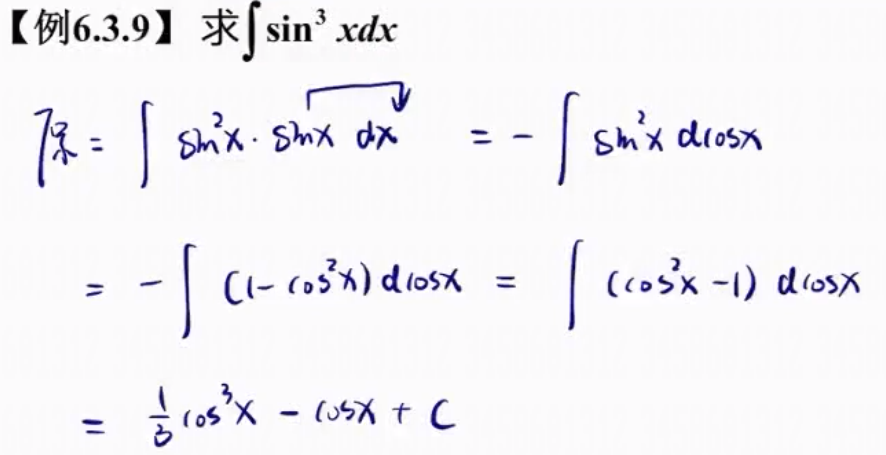 【例6.3.9】 求∫sin³ xdx
原 = ∫ sin²x · sinx dx = - ∫ sin²x dcosx
= - ∫ (1 - cos²x) dcosx = ∫ (cos²x - 1) dcosx
= 1/3 cos³x - cosx + C